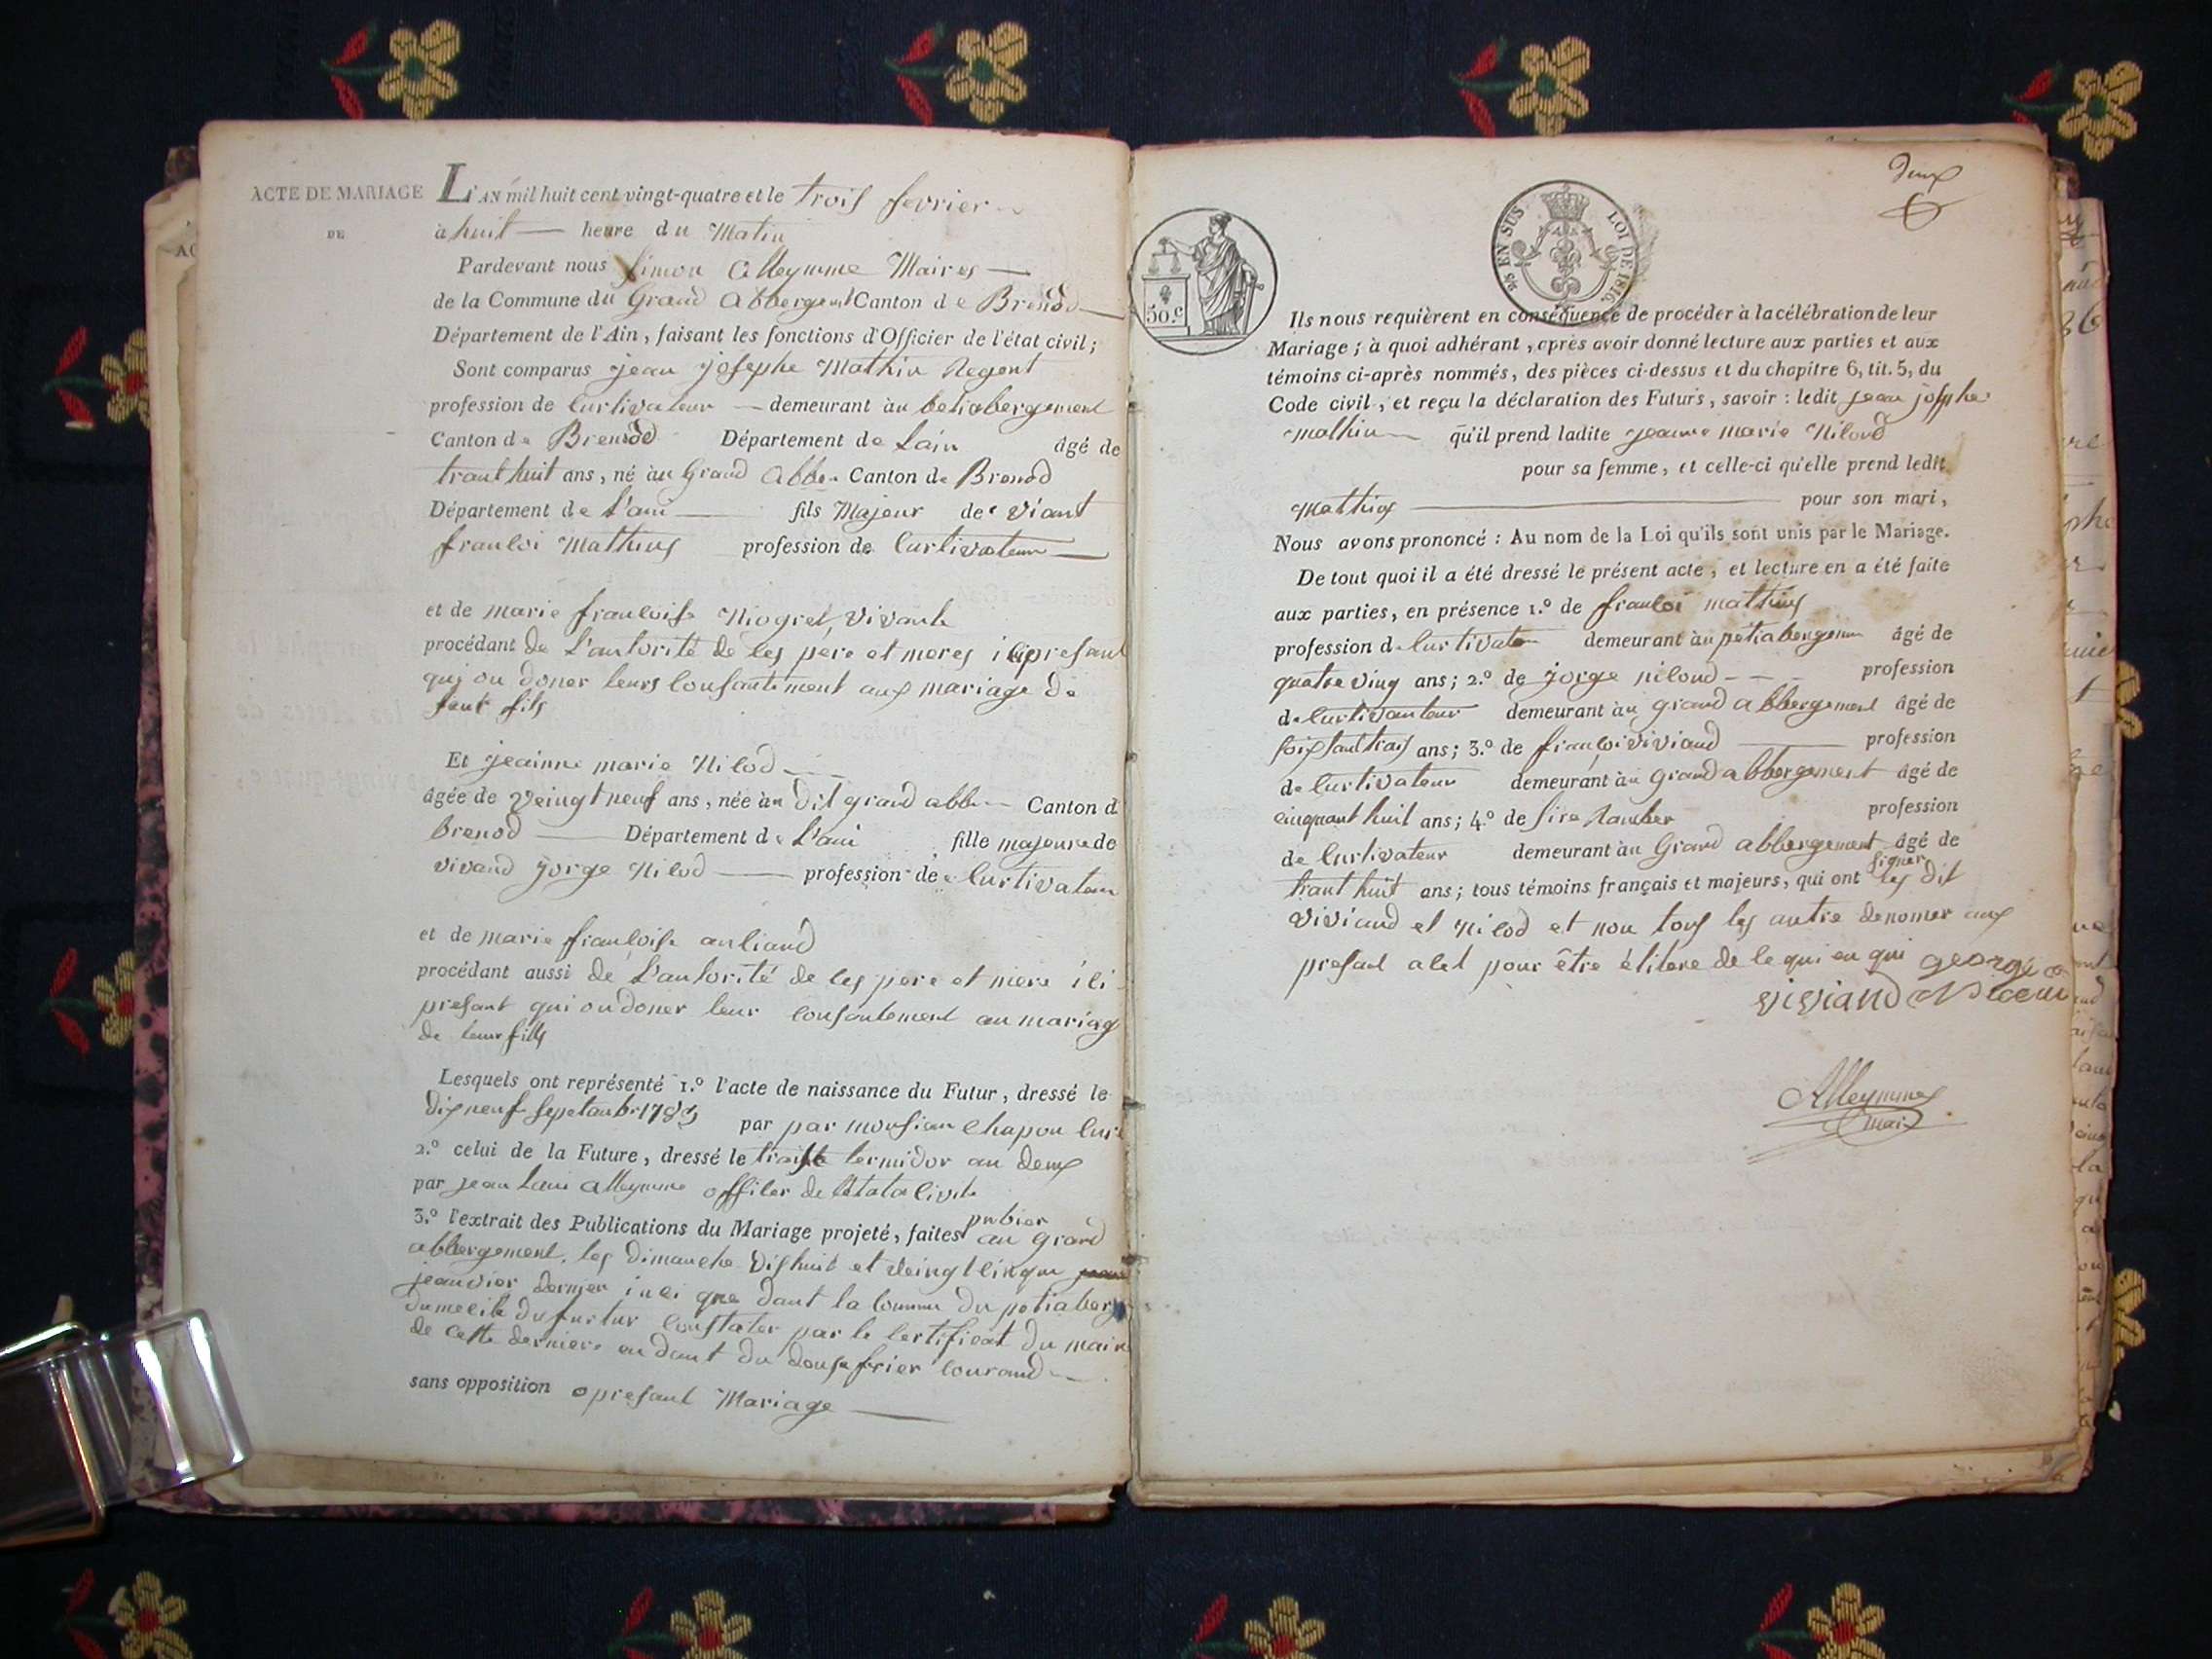 ACTE DE MARIAGE
DE
L'AN mil huit cent vingt-quatre et le trois fevrier
à huit — heure du Matin
Pardevant nous Simon Alleymme Maires —
de la Commune du Grand Abbergement Canton de Brenod —
Département de l'Ain, faisant les fonctions d'Officier de l'état civil;
Sont comparus jean josephe Mathin Regent
profession de Curtivateur — demeurant àu betiabergement
Canton de Brenod Département de Lain âgé de
trant huit ans, né àu Grand Abbe Canton de Brenod
Département de L'ain — fils Majeur de viant
francoi Mathieus profession de Curtivateur —
et de marie francoise Niogret, vivante
procédant de L'autorité de ces pere et meres ici presant
qui on doner leurs consantement aux mariage de
leur fils
Et jeainne marie Nilod —
âgée de veingt neuf ans, née àu dit grand abb Canton d
Brenod — Département de L'ain fille majeure de
vivand jorge Nilod — profession de Curtivateur
et de marie francoise anliand
procédant aussi de L'autorité de ces pere et mere ici
presant qui on doner leur consantement au mariag
de leur fills
Lesquels ont représenté 1.º l'acte de naissance du Futur, dressé le
dix neuf sepetanbr par par monsieur Chapon Cur
2.º celui de la Future, dressé le trante termidor an deux
par jean Louis Alleymme officer de letata civile
3.º l'extrait des Publications du Mariage projeté, faites pubier au grand
abbergement, les dimanche dishuit et veingt cinque
jeanvier dernier inci que dant la commune du petiaberg
dumecile du furtur constater par le certificat du maire
de cette derniere en dant du frier courand
sans opposition o presant Mariage —
deux
50.c
EN SUS LOI DE 1816.
Ils nous requièrent en conséquence de procéder à la célébration de leur
Mariage; à quoi adhérant, après avoir donné lecture aux parties et aux
témoins ci-après nommés, des pièces ci-dessus et du chapitre 6, tit. 5, du
Code civil, et reçu la déclaration des Futurs, savoir: ledit jean josephe
mathin — qu'il prend ladite jeanne marie Nilond
pour sa femme, et celle-ci qu'elle prend ledit
Mathieus — pour son mari,
Nous avons prononcé: Au nom de la Loi qu'ils sont unis par le Mariage.
De tout quoi il a été dressé le présent acte, et lecture en a été faite
aux parties, en présence 1.º de francoi mathieus
profession de Curtivateur demeurant àu petiabergemen âgé de
quatre ving ans; 2.º de jorge nilond - - - profession
de Curtivanteur demeurant àu grand abbergement âgé de
soissant trais ans; 3.º de françoi viviand — profession
de Curtivateur demeurant àu Grand abbergement âgé de
cinquant huit ans; 4.º de profession
de Curtivateur demeurant àu Grand abbergement âgé de
trant huit ans; tous témoins français et majeurs, qui ont signer les dit
viviand et Nilod et non tous les autre denomer aux
presant alet pour être élitere de ce qui en qui george
viviand
Alleymme
mair